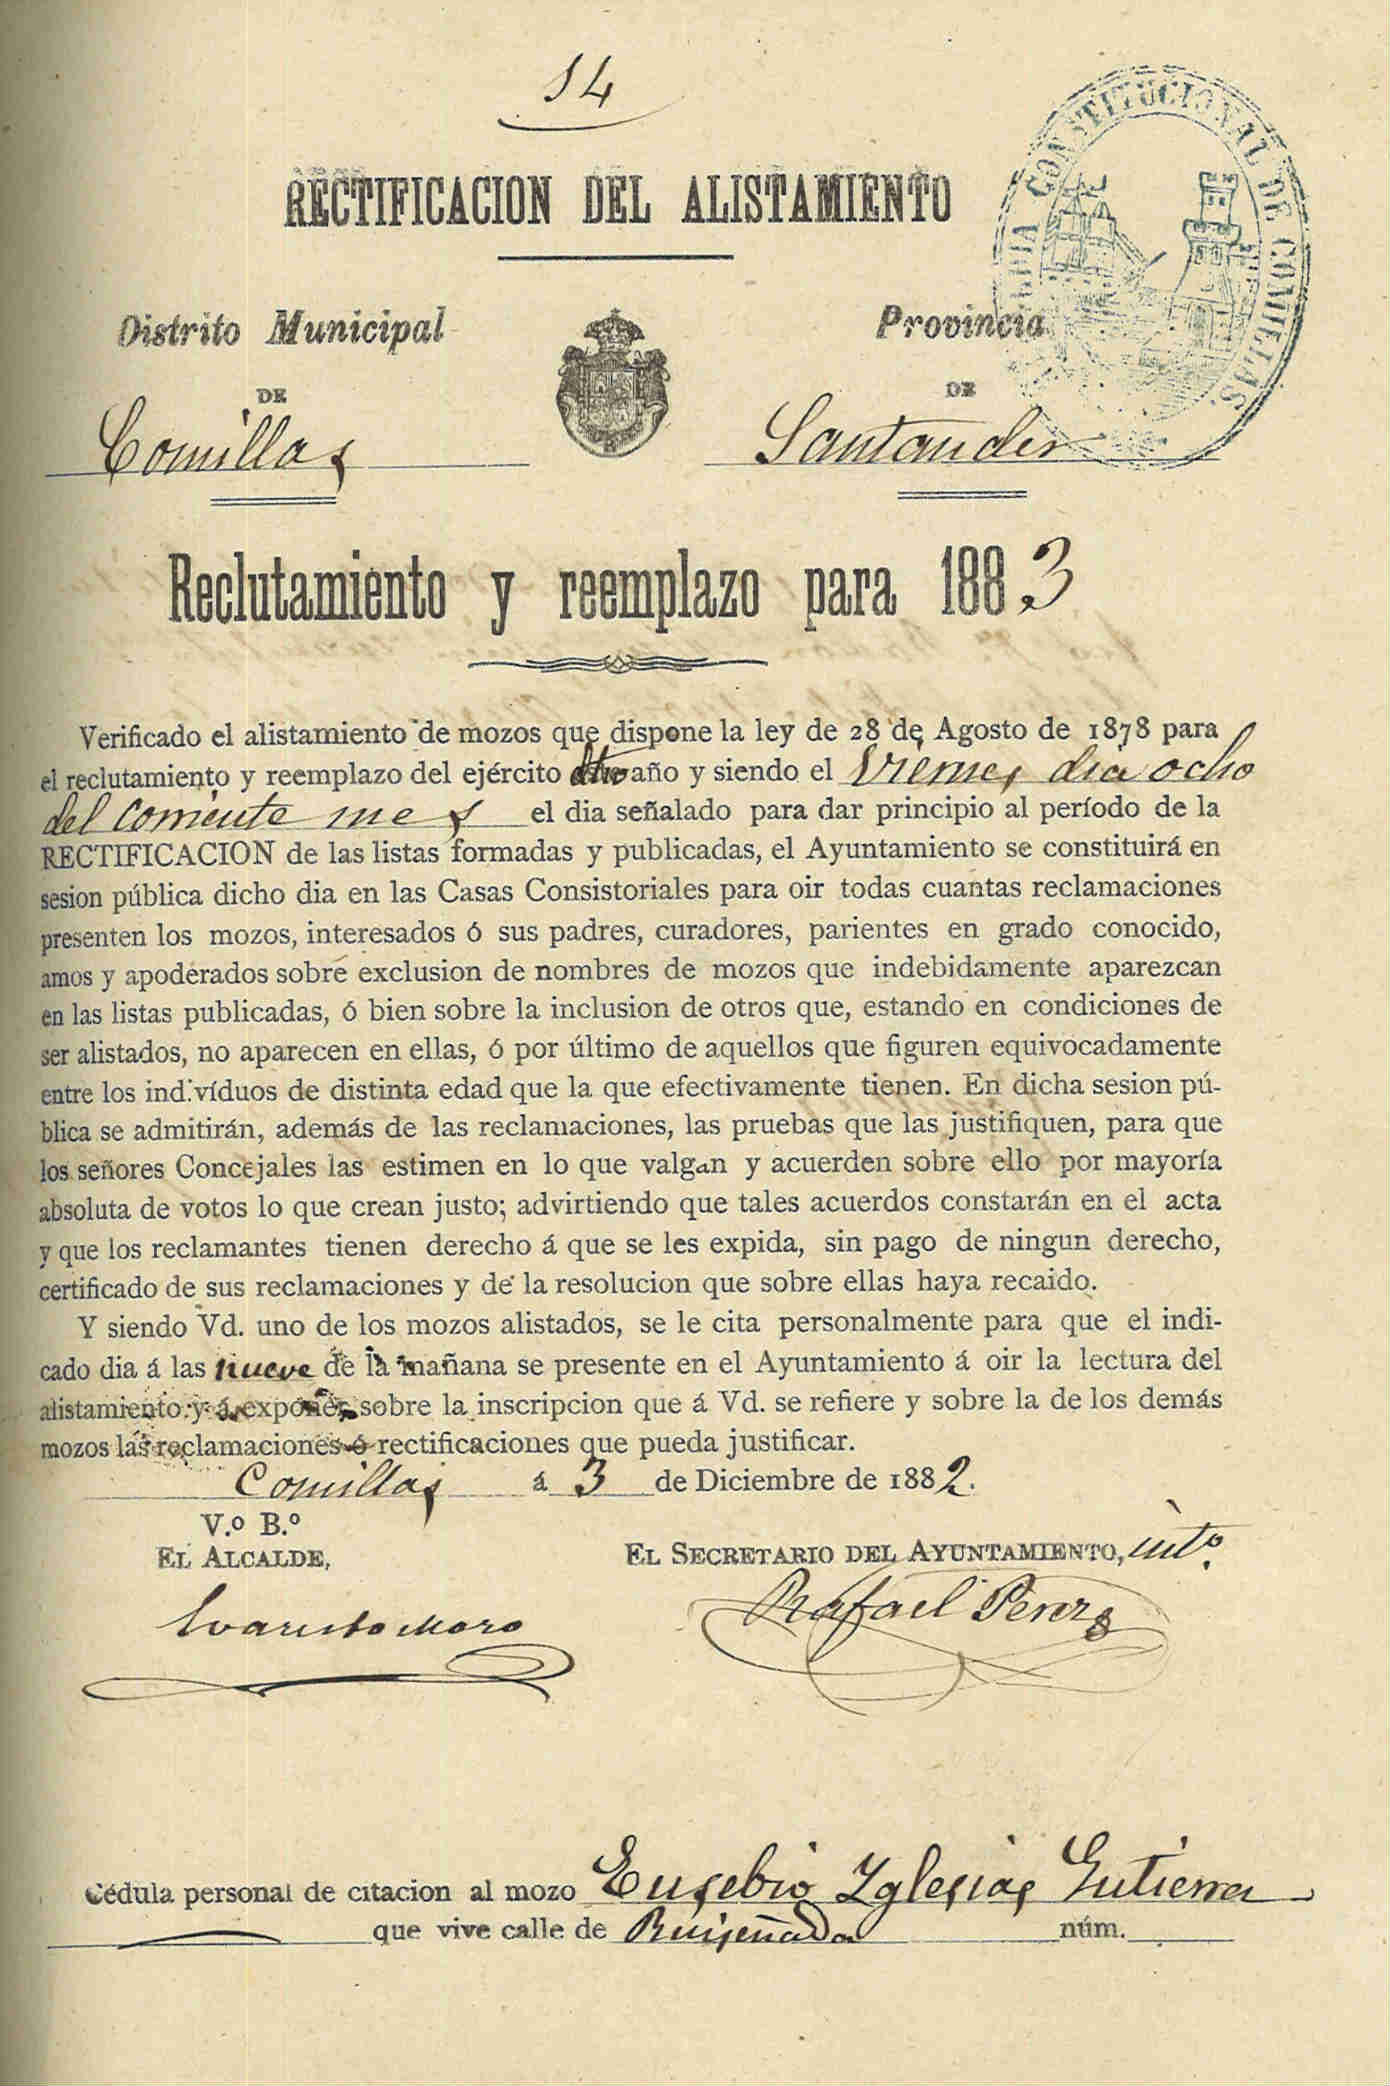 14
RECTIFICACION DEL ALISTAMIENTO
CONSTITUCIONAL DE COMILLAS
Distrito Municipal
Provincia
DE
DE
Comillas
Santander
Reclutamiento y reemplazo para 1883
Verificado el alistamiento de mozos que dispone la ley de 28 de Agosto de 1878 para
el reclutamiento y reemplazo del ejército dho año y siendo el Viernes dia ocho
del corriente mes el dia señalado para dar principio al período de la
RECTIFICACION de las listas formadas y publicadas, el Ayuntamiento se constituirá en
sesion pública dicho dia en las Casas Consistoriales para oir todas cuantas reclamaciones
presenten los mozos, interesados ó sus padres, curadores, parientes en grado conocido,
amos y apoderados sobre exclusion de nombres de mozos que indebidamente aparezcan
en las listas publicadas, ó bien sobre la inclusion de otros que, estando en condiciones de
ser alistados, no aparecen en ellas, ó por último de aquellos que figuren equivocadamente
entre los individuos de distinta edad que la que efectivamente tienen. En dicha sesion pú-
blica se admitirán, además de las reclamaciones, las pruebas que las justifiquen, para que
los señores Concejales las estimen en lo que valgan y acuerden sobre ello por mayoría
absoluta de votos lo que crean justo; advirtiendo que tales acuerdos constarán en el acta
y que los reclamantes tienen derecho á que se les expida, sin pago de ningun derecho,
certificado de sus reclamaciones y de la resolucion que sobre ellas haya recaido.
Y siendo Vd. uno de los mozos alistados, se le cita personalmente para que el indi-
cado dia á las nueve de la mañana se presente en el Ayuntamiento á oir la lectura del
alistamiento y á exponer sobre la inscripcion que á Vd. se refiere y sobre la de los demás
mozos las reclamaciones ó rectificaciones que pueda justificar.
Comillas á 3 de Diciembre de 1882.
V.º B.º
EL ALCALDE,
EL SECRETARIO DEL AYUNTAMIENTO, intº.
Evaristo Moro
Rafael Perez
Cédula personal de citacion al mozo Eusebio Yglesias Gutierrez
que vive calle de Ruiseñada núm.